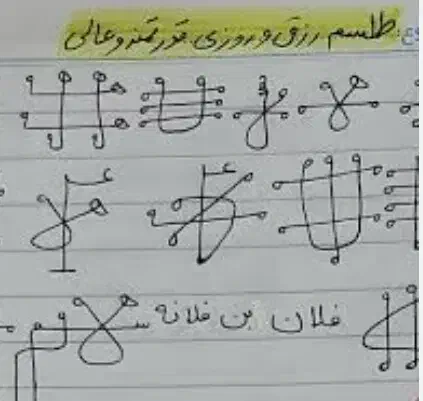 طلسم رزق و روزی قدرتمند و عالی
فلان بن فلانه